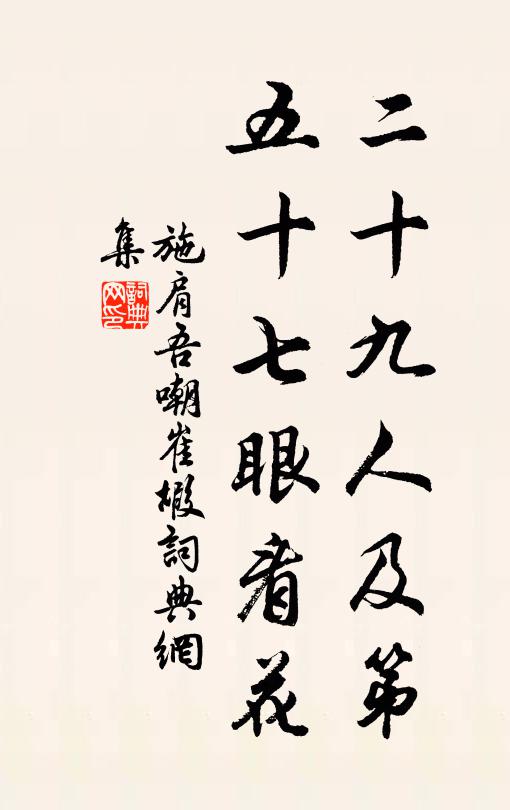 二十九人及第
五十七眼看花
施肩吾嘲崔嘏詞典網
集
詞典
网印